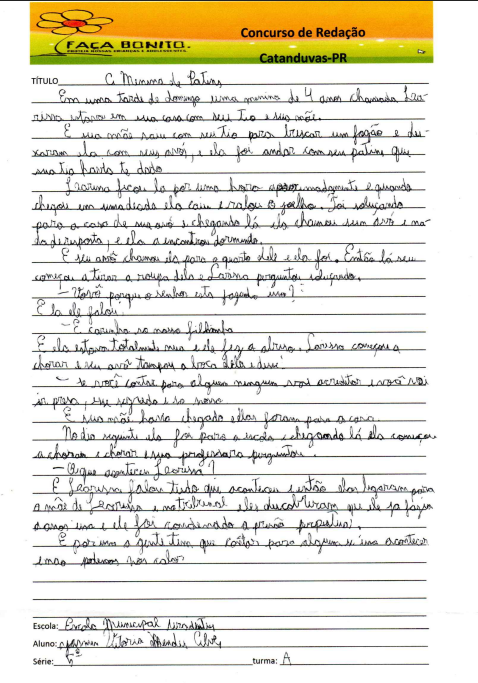 FAÇA BONITO.
PROTEJA NOSSAS CRIANÇAS E ADOLESCENTES.
Concurso de Redação
Catanduvas-PR
TÍTULO A Menina de Patins
Em uma tarde de domingo uma menina de 4 anos chamada La-
rissa estava em sua casa com seu tio e sua mãe.
E sua mãe saiu com seu tio para buscar um fogão e dei-
xaram ela com seus avós, e ela foi andar com seu patins que
sua tia havia te dado
Larissa ficou la por uma hora e quando
chegou em uma decida ela caiu e ralou o joelho. Foi soluçando
para a casa de sua avó e chegando lá ela chamou sua avó e na-
da di resposta, e ela a encontrou dormindo.
E seu avô chamou ela para o quarto dele e ela foi. Então lá seu
começou a tirar a roupa dela e Larissa perguntou soluçando.
- Vovô porque o senhor esta fazendo isso?
E la ele falou.
- É carinho so nosso
E ela estava totalmente nua e ele fez o abuso. Larissa começou a
chorar e seu avô tampou a boca dela e disse.
- Se você contar para alguem ninguem vai acreditar e você vai
ir presa, esse segredo e so nosso.
E sua mãe havia chegado elas foram para a casa.
No dia seguinte ela foi para a escola e chegando lá ela começou
a chorar e chorar e sua professora perguntou.
- O que aconteceu Larissa?
E Larissa falou tudo que aconteceu e então elas ligaram para
a mãe de Larissa e no tribunal eles descobriram que ele ja fazia
anos isso e ele foi condenado a prisão
E por isso a gente tem que contar para alguem se isso acontecer
e não podemos nos calar
Escola: Escola Municipal
Aluno: Vitoria Mendes
Série: 5º turma: A